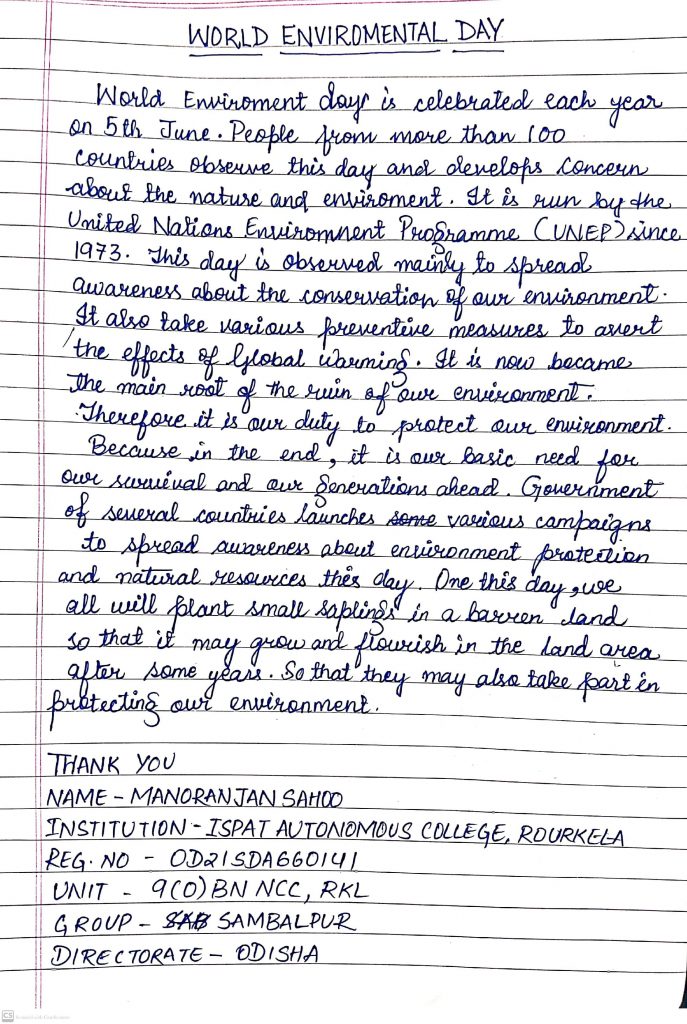 WORLD ENVIROMENTAL DAY
World Enviroment day is celebrated each year
on 5th June. People from more than 100
countries observe this day and develops concern
about the nature and enviroment. It is run by the
United Nations Enviromnent Programme (UNEP) since
1973. This day is observed mainly to spread
awareness about the conservation of our environment.
It also take various preventive measures to avert
the effects of Global warming. It is now became
the main root of the ruin of our environment.
Therefore it is our duty to protect our environment.
Because in the end, it is our basic need for
our survival and our generations ahead. Government
of several countries launches some various campaigns
to spread awareness about environment protection
and natural resources this day. One this day, we
all will plant small saplings in a barren land
so that it may grow and flourish in the land area
after some years. So that they may also take part in
protecting our environment.
THANK YOU
NAME - MANORANJAN SAHOO
INSTITUTION - ISPAT AUTONOMOUS COLLEGE, ROURKELA
REG. NO - OD21SDA660141
UNIT - 9(O) BN NCC, RKL
GROUP - SAB SAMBALPUR
DIRECTORATE - ODISHA
CS